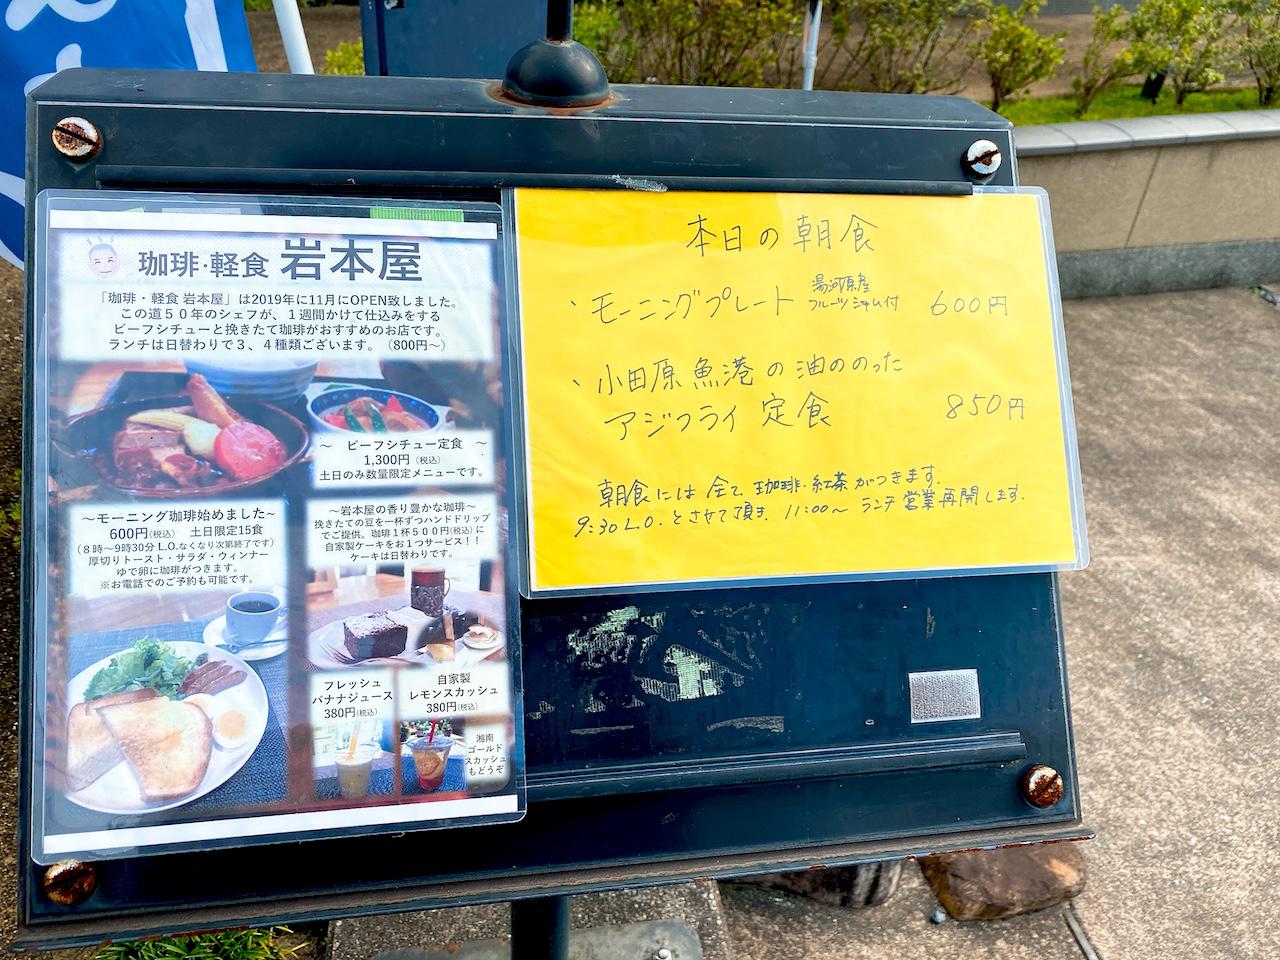 珈琲・軽食 岩本屋
「珈琲・軽食 岩本屋」は2019年に11月にOPEN致しました。
この道５０年のシェフが、１週間かけて仕込みをする
ビーフシチューと挽きたて珈琲がおすすめのお店です。
ランチは日替わりで３、４種類ございます。（800円〜）
〜 ビーフシチュー定食 〜
1,300円（税込）
土日のみ数量限定メニューです。
〜モーニング珈琲始めました〜
600円（税込） 土日限定15食
（８時〜9時30分 L.O.なくなり次第終了です）
厚切りトースト・サラダ・ウィンナー
ゆで卵に珈琲がつきます。
※お電話でのご予約も可能です。
〜岩本屋の香り豊かな珈琲〜
挽きたての豆を一杯ずつハンドドリップ
でご提供。珈琲１杯５００円（税込）に
自家製ケーキをお１つサービス！！
ケーキは日替わりです。
フレッシュ
バナナジュース
380円（税込）
自家製
レモンスカッシュ
380円（税込）
湘南
ゴールド
スカッシュ
もどうぞ
本日の朝食
、モーニングプレート 湯河原産 フルーツジャム付 600円
、小田原魚港の油ののった
アジフライ定食 850円
朝食には全て珈琲・紅茶がつきます。
9:30 L.O.とさせて頂き、11:00〜 ランチ営業再開します。